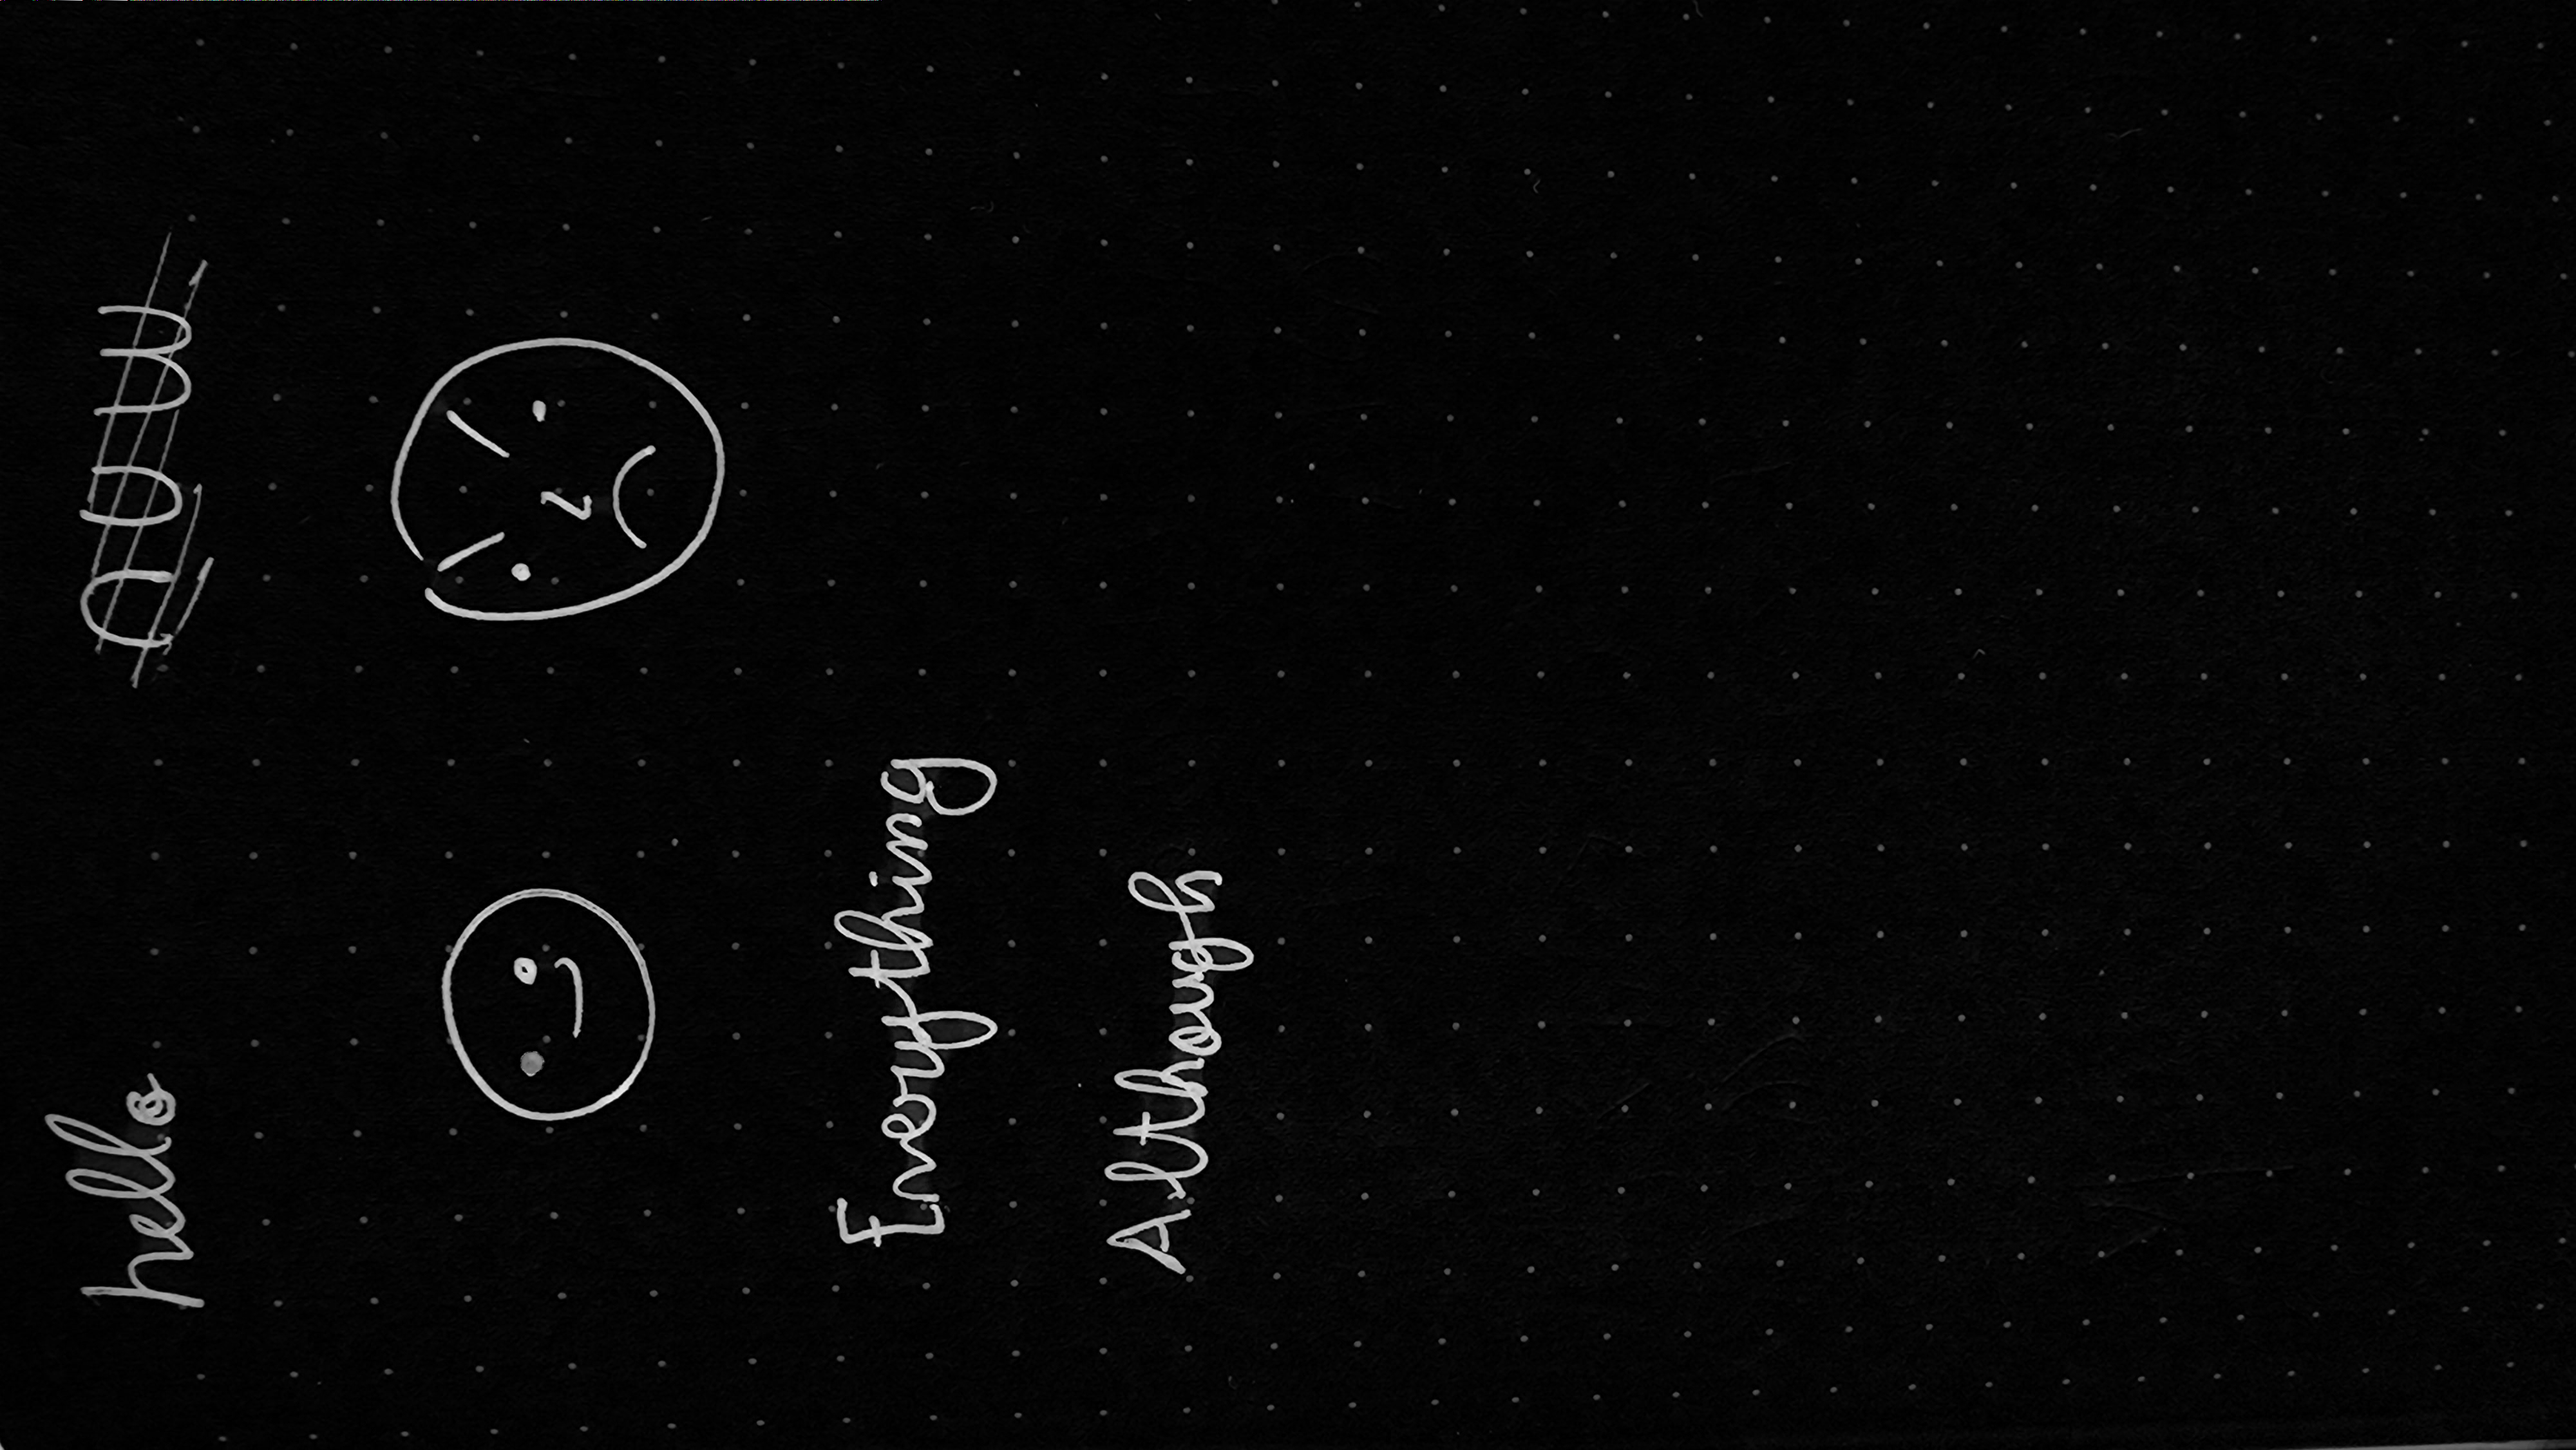 hello
Everything
Although